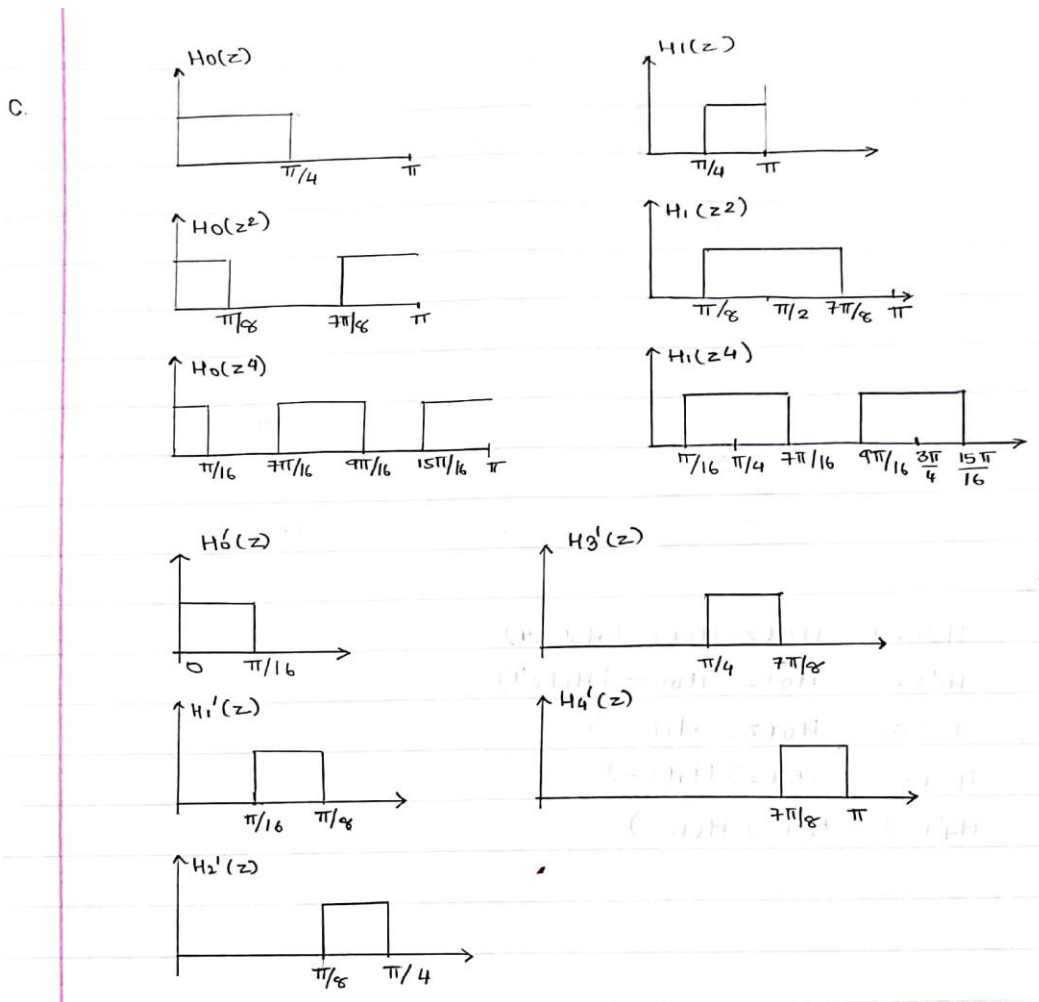 C.
Ho(z)
π/4 π
H1(z)
π/4 π
Ho(z²)
π/8 7π/8 π
H1(z2)
π/8 π/2 7π/8 π
Ho(z4)
π/16 7π/16 9π/16 15π/16 π
H1(z4)
π/16 π/4 7π/16 9π/16 3π/4 15π/16
Ho'(z)
0 π/16
H3'(z)
π/4 7π/8
H1'(z)
π/16 π/8
H4'(z)
7π/8 π
H2'(z)
π/8 π/4